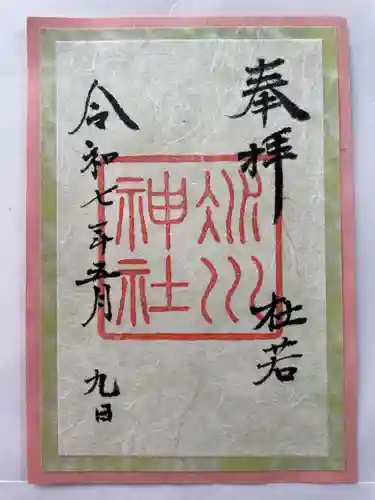 奉拝
杜若
氷川
神社
令和七年五月九日